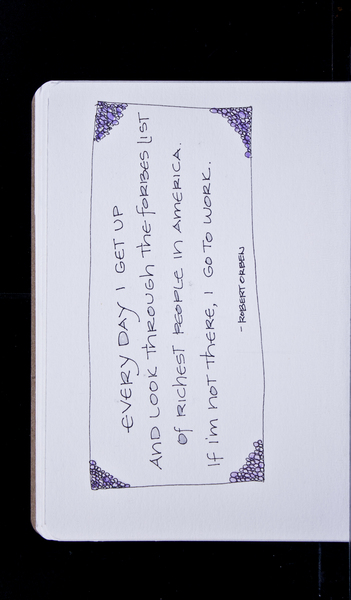 EVERY DAY I GET UP
AND LOOK THROUGH THE FORBES LIST
OF RICHEST PEOPLE IN AMERICA.
IF I'M NOT THERE, I GO TO WORK.
- ROBERT ORBEN